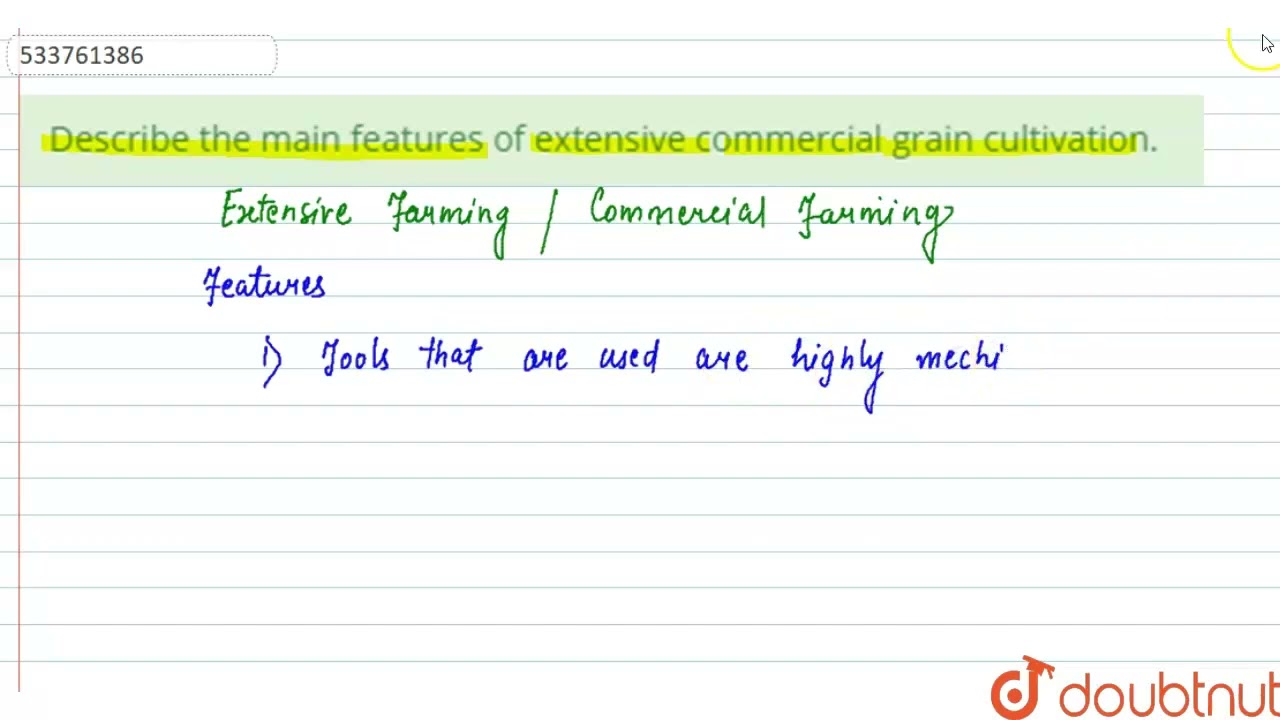 533761386
Describe the main features of extensive commercial grain cultivation.
Extensive Farming / Commercial Farming
Features
1) Tools that are used are highly mechi
doubtnut